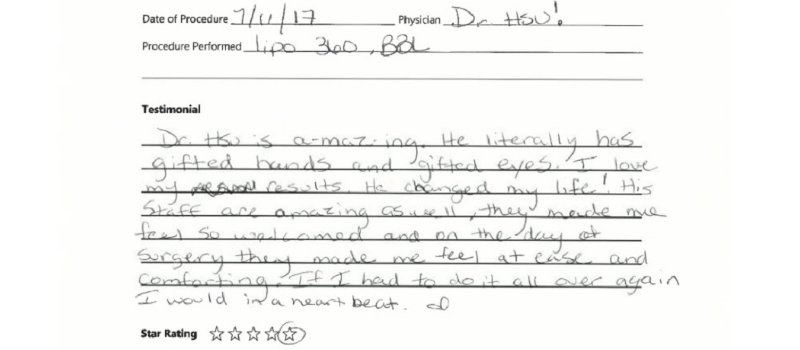 Date of Procedure 7/11/17 Physician Dr. HSU!
Procedure Performed Lipo 360, BBL
Testimonial
Dr. Hsu is a-maz-ing. He literally has
gifted hands and gifted eyes. I love
my results. He changed my life! His
Staff are amazing as well, they made me
feel so welcomed and on the day of
surgery they made me feel at ease and
comforting. If I had to do it all over again
I would in a heart beat.
Star Rating ☆☆☆☆☆